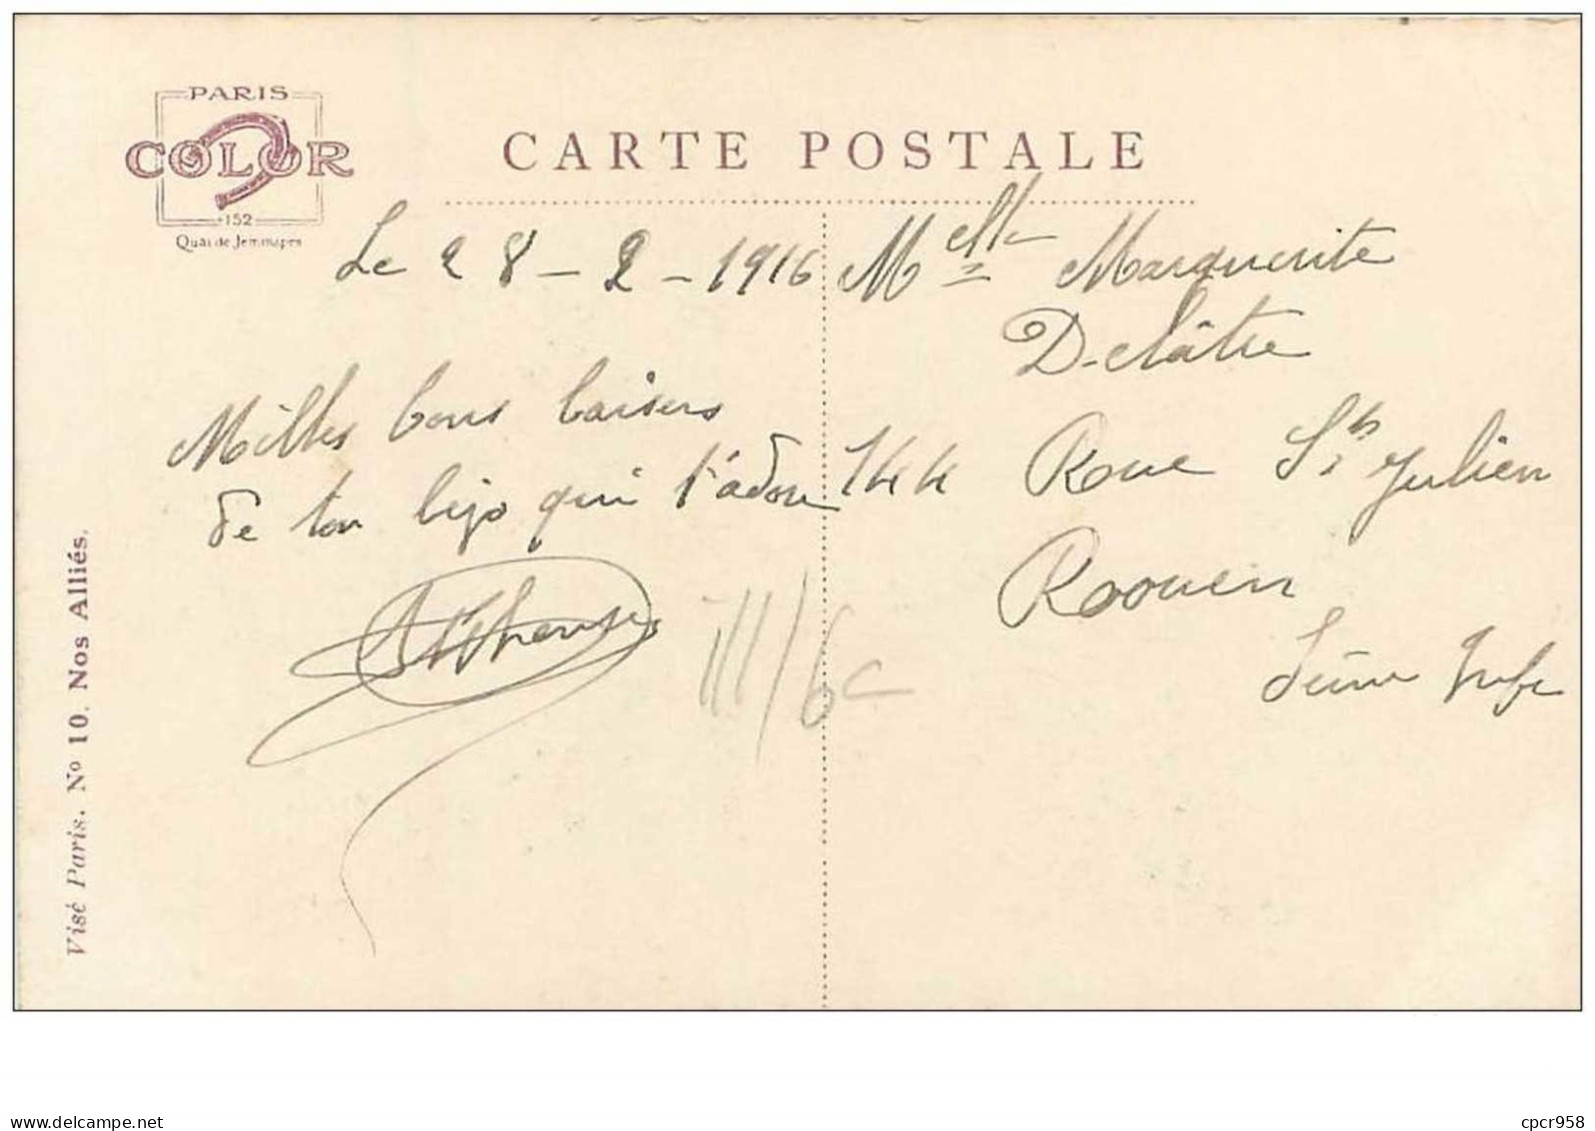 PARIS
COLOR
152
Quai de Jemmapes
CARTE POSTALE
Le 28-2-1916
Milles bons baisers
de ton bijo qui t'adore
Alphonse
III/6c
Melle Marguerite
Delâtre
144 Roue St Julien
Roouen
Seine Infre
Visé Paris. No 10. Nos Alliés.
www.delcampe.net
cpcr958